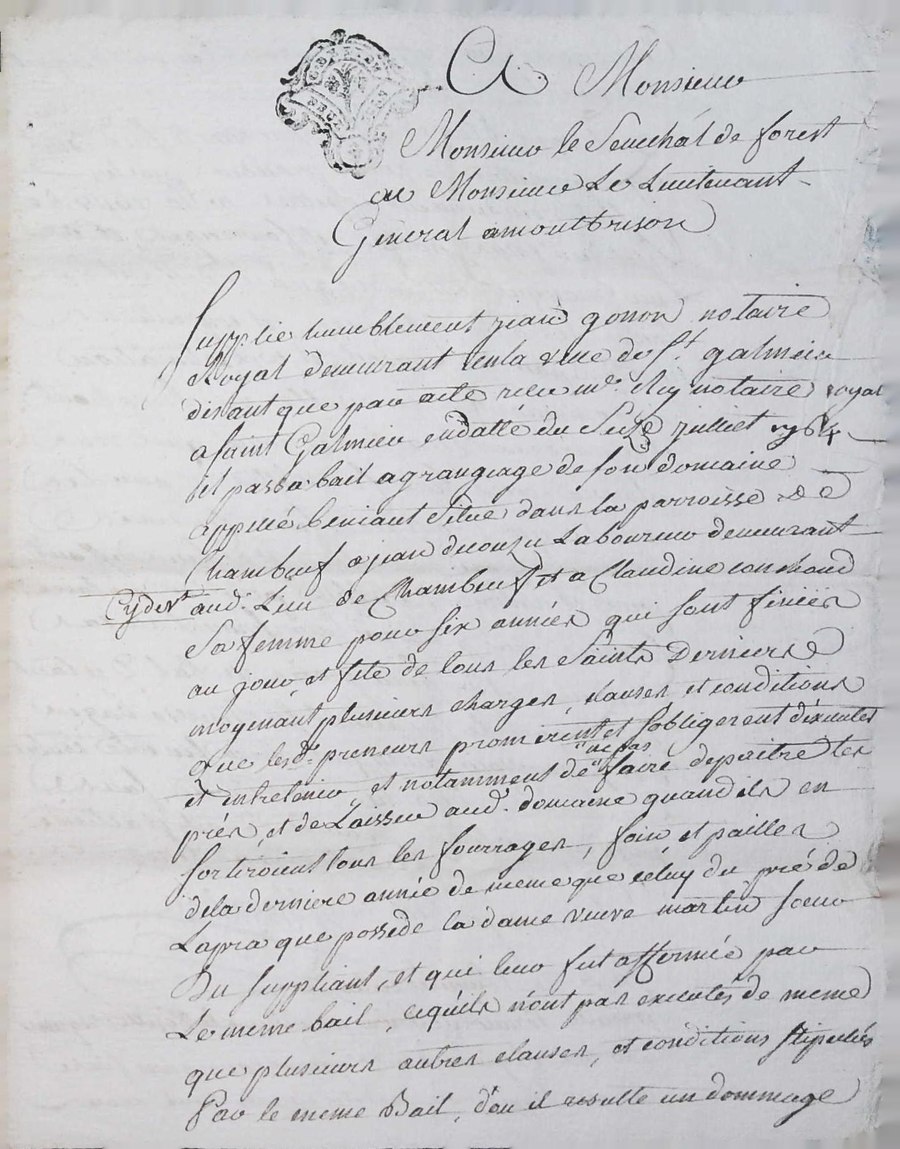 A Monsieur
Monsieur le Senechal de forest
ou Monsieur Le Lieutenant
General amontbrison
Supplie humblement jean gonon notaire
Royal demeurant en la ville de St. galmier
disant que par acte recu me. notaire royal
a saint Galmier endatté du Seize juillet 1764
il passa bail agrangeage de son domaine
appellé beniaut Situé dans la parroisse de
Chambeuf a jean Laboureur demeurant
cydevt. aud. Lieu de Chambeuf et a Claudine conchaud
Sa femme pour six années qui sont finies
au jour, et fete de tous les Saints Derniere
moyenant plusieurs charges, clauses et conditions
que lesds. preneurs promirent et sobligerent dexecuter
et entretenir et notamment de faire depaitre les
ne pas
prés, et de Laisser aud. domaine quand ils en
sortiroient tous les fourrages, foin, et pailles
dela derniere année de meme que celuy du pré de
Lapra que possede la dame veuve martin soeur
Du suppliant, et qui leur fut affermée par
Le meme bail, cequils n'ont pas executés de meme
que plusieurs autres clauses, et conditions stipulées
Par le meme Bail, d'ou il resulte un dommage